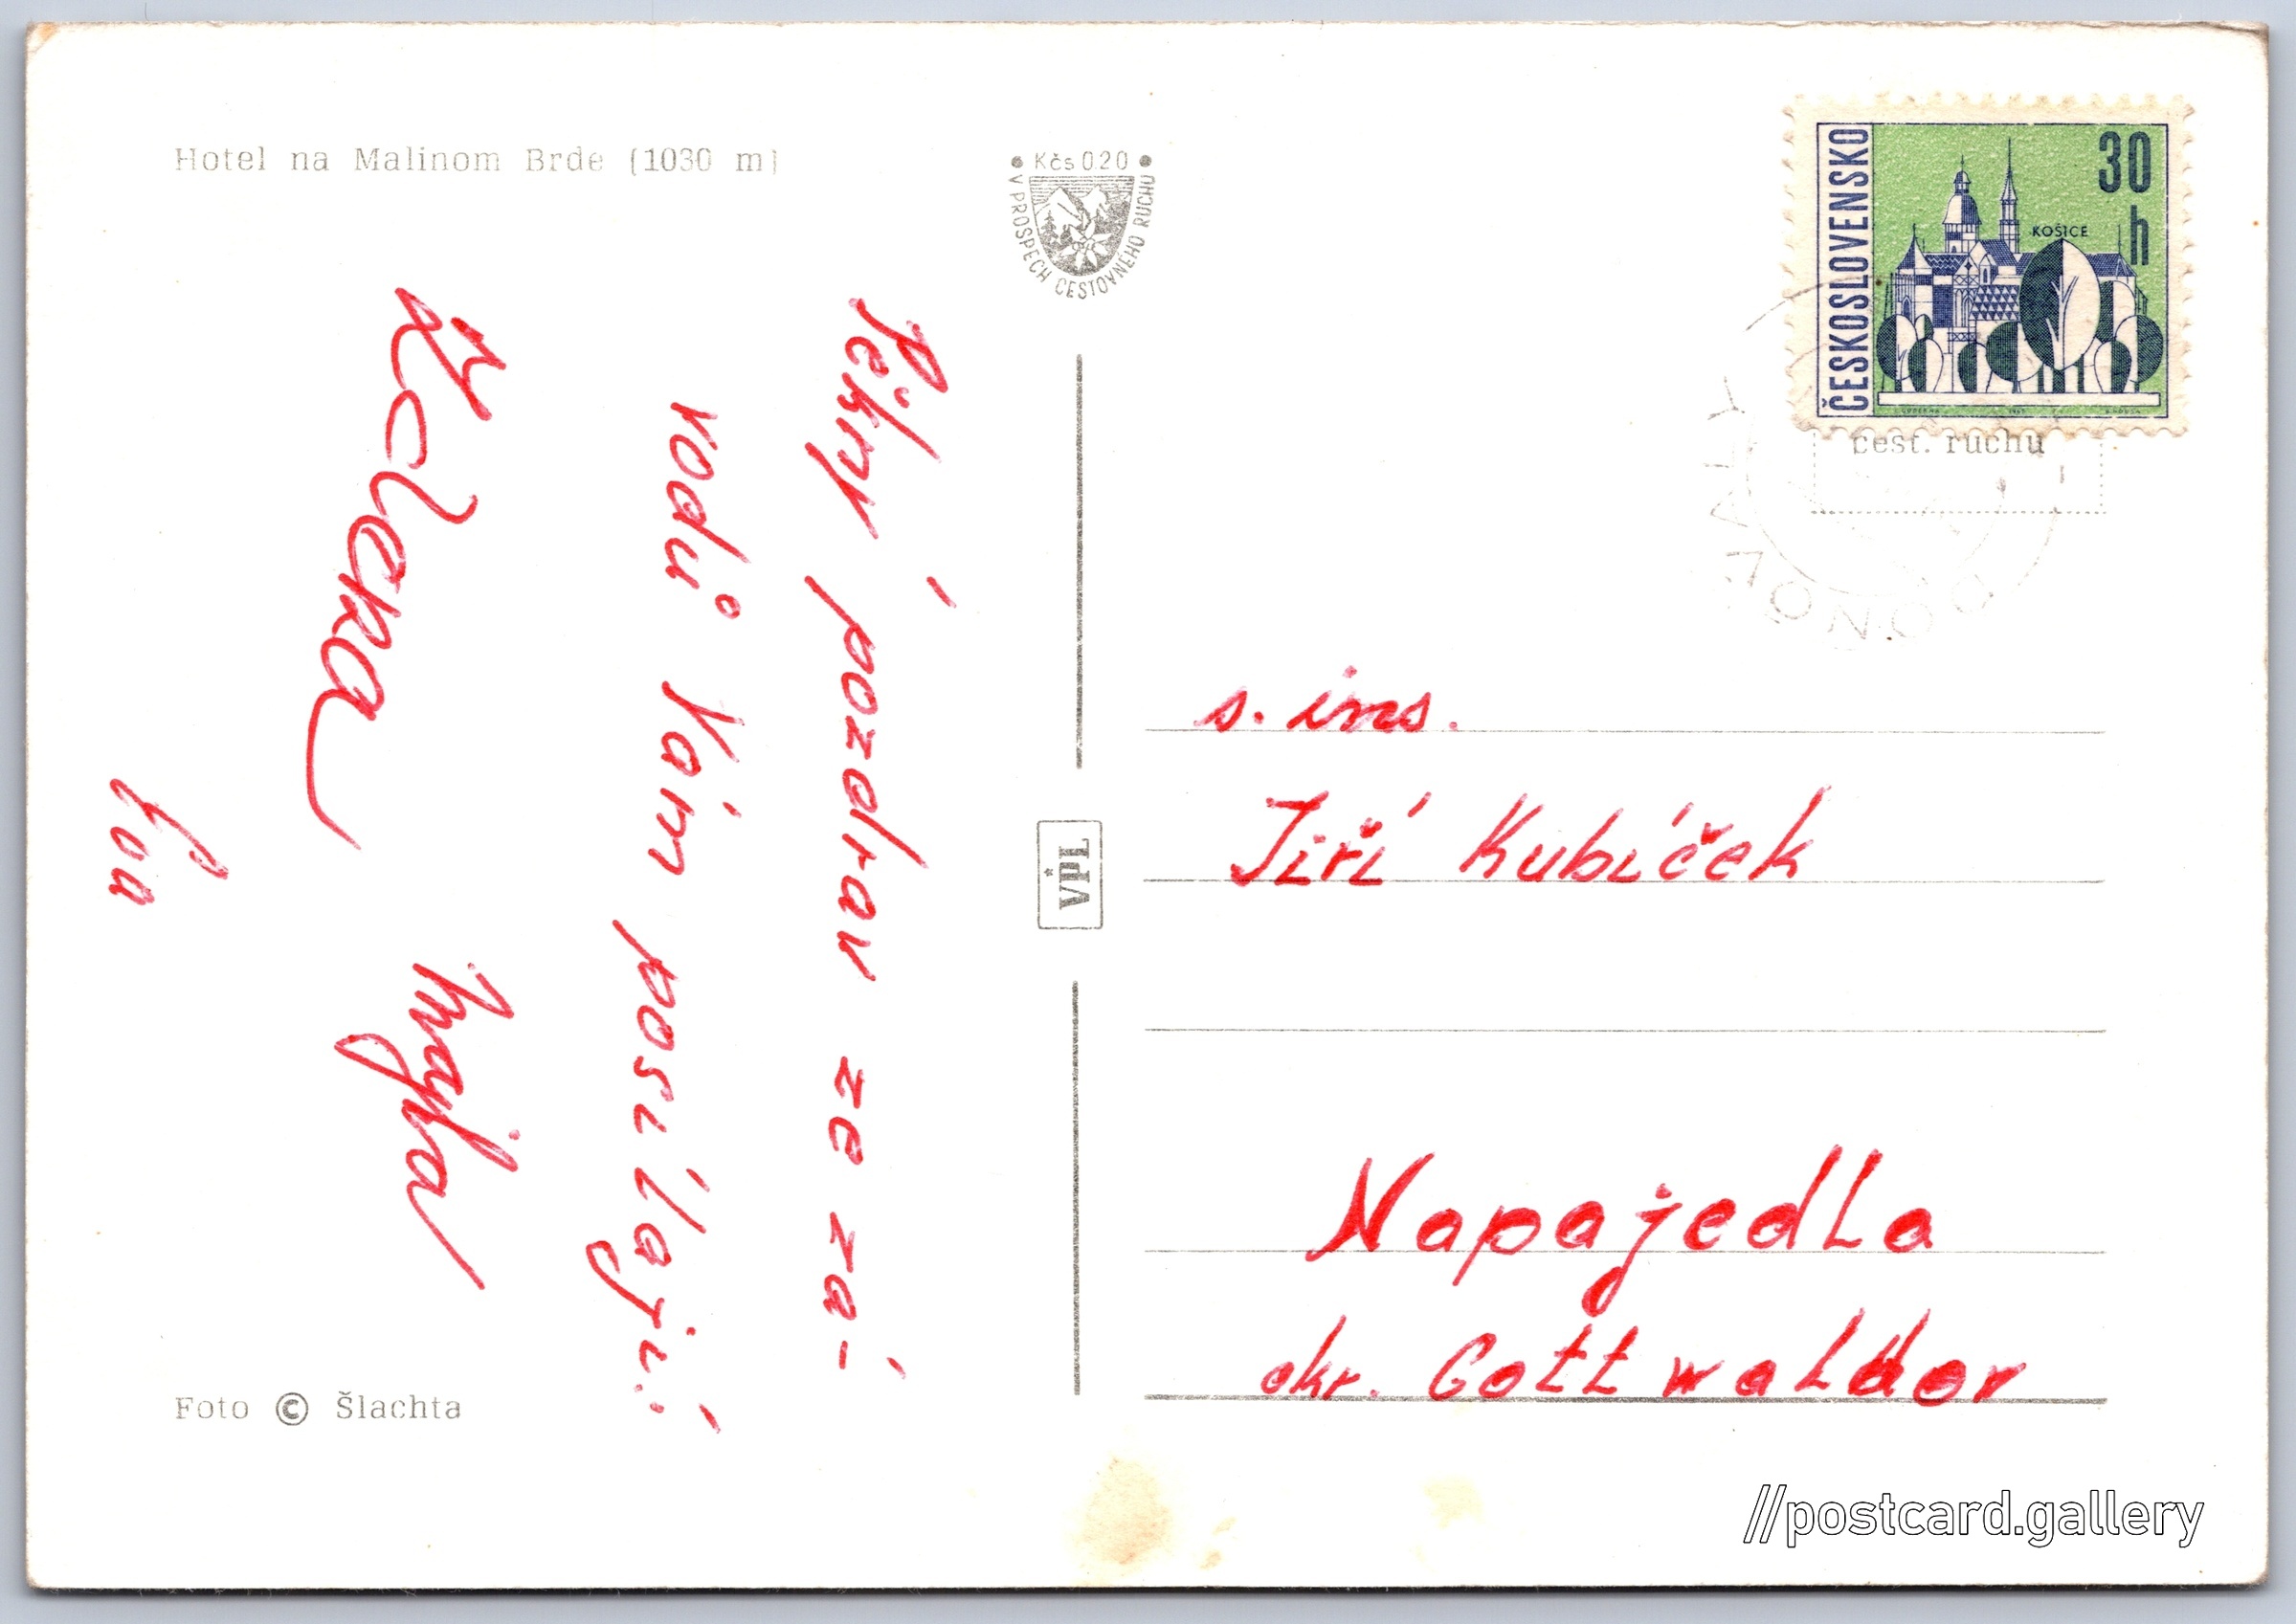 Hotel na Malinom Brde (1030 m)
• Kčs 0.20 •
V PROSPECH CESTOVNÉHO RUCHU
Pěkný pozdrav ze zá-
vodů Vám posílají:
Zdena
Majka
Eva
Foto © Šlachta
VPL
ČESKOSLOVENSKO
30
h
KOŠICE
cest. ruchu
DONOVALY
s. ins.
Jiří Kubíček
Napajedla
okr. Gottwaldov
//postcard.gallery